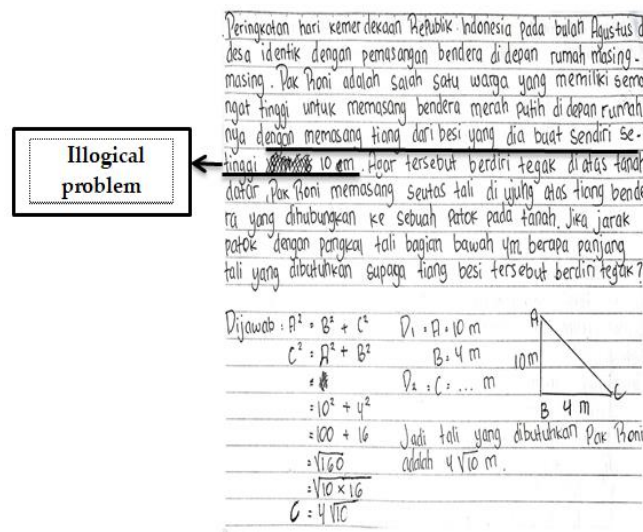 Peringkatan hari kemerdekaan Republik Indonesia pada bulan Agustus d
desa identik dengan pemasangan bendera di depan rumah masing-
masing. Pak Roni adalah salah satu warga yang memiliki sema
ngat tinggi untuk memasang bendera merah putih di depan rumah
nya dengan memasang tiang dari besi yang dia buat sendiri se-
tinggi 10 m. Agar tersebut berdiri tegak diatas tanah
datar, Pak Roni memasang seutas tali di ujung atas tiang bende
ra yang dihubungkan ke sebuah patok pada tanah. Jika jarak
patok dengan pangkal tali bagian bawah 4m, berapa panjang
tali yang dibutuhkan supaya tiang besi tersebut berdiri tegak?
Illogical
problem
Dijawab : A² = B² + C²
C² = A² + B²
=
= 10² + 4²
= 100 + 16
= √160
= √10 × 16
C = 4√10
D1 = A = 10 m
B = 4 m
D2 = C = ... m
Jadi tali yang dibutuhkan Pak Roni
adalah 4√10 m.
A
10m
B 4 m C